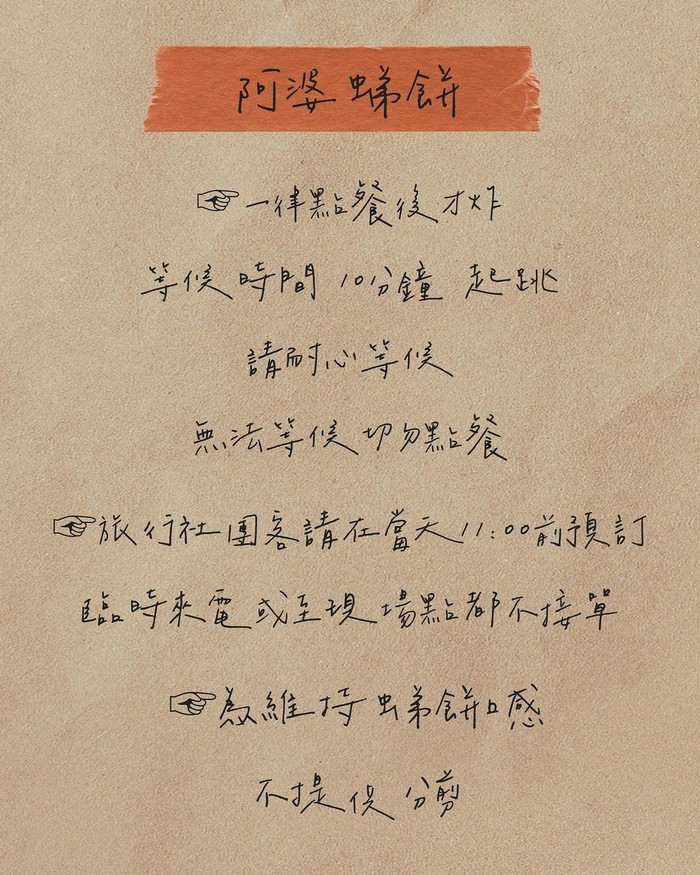 阿婆蛦餅
☞一律點餐後才炸
等候時間 10分鐘 起跳
請耐心等候
無法等候切勿點餐
☞旅行社團客請在當天11:00前預訂
臨時來電或至現場點都不接單
☞為維持蛦餅口感
不提供分剪